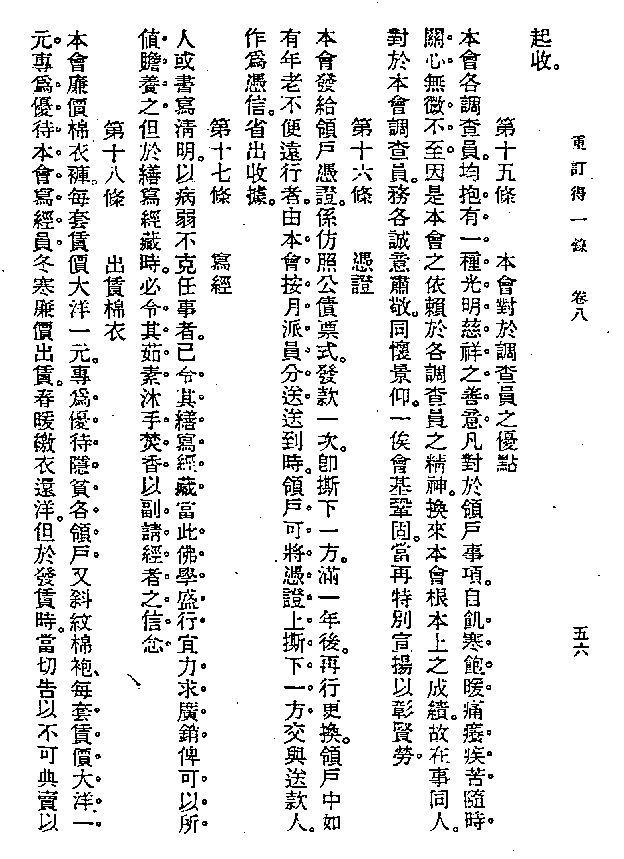 重訂得一錄　卷八　五六
起收。
第十五條　本會對於調查員之優點
本會各調查員。均抱有一種光明慈祥之善意。凡對於領戶事項。自飢寒飽暖痛癢疾苦。隨時
關心。無微不至。因是本會之依賴於各調查員之精神。換來本會根本上之成績。故在事同人。
對於本會調查員。務各誠意肅敬。同懷景仰。一俟會基鞏固。當再特別宣揚。以彰賢勞。
第十六條　憑證
本會發給領戶憑證。係仿照公債票式。發款一次。卽撕下一方。滿一年後。再行更換。領戶中如
有年老不便遠行者。由本會按月派員分送。送到時。領戶可將憑證上撕下一方。交與送款人。
作爲憑信。省出收據。
第十七條　寫經
人或書寫清明。以病弱不克任事者。已令其繕寫經藏。當此佛學盛行。宜力求廣銷。俾可以所
值贍養之。但於繕寫經藏時。必令其茹素沐手焚香。以副請經者之信念。
第十八條　出賃棉衣
本會廉價棉衣褲。每套賃價大洋一元。專爲優待隱貧各領戶。又斜紋棉袍、每套賃價大洋一
元。專爲優待本會寫經員。冬寒廉價出賃。春暖繳衣還洋。但於發賃時。當切告以不可典賣以